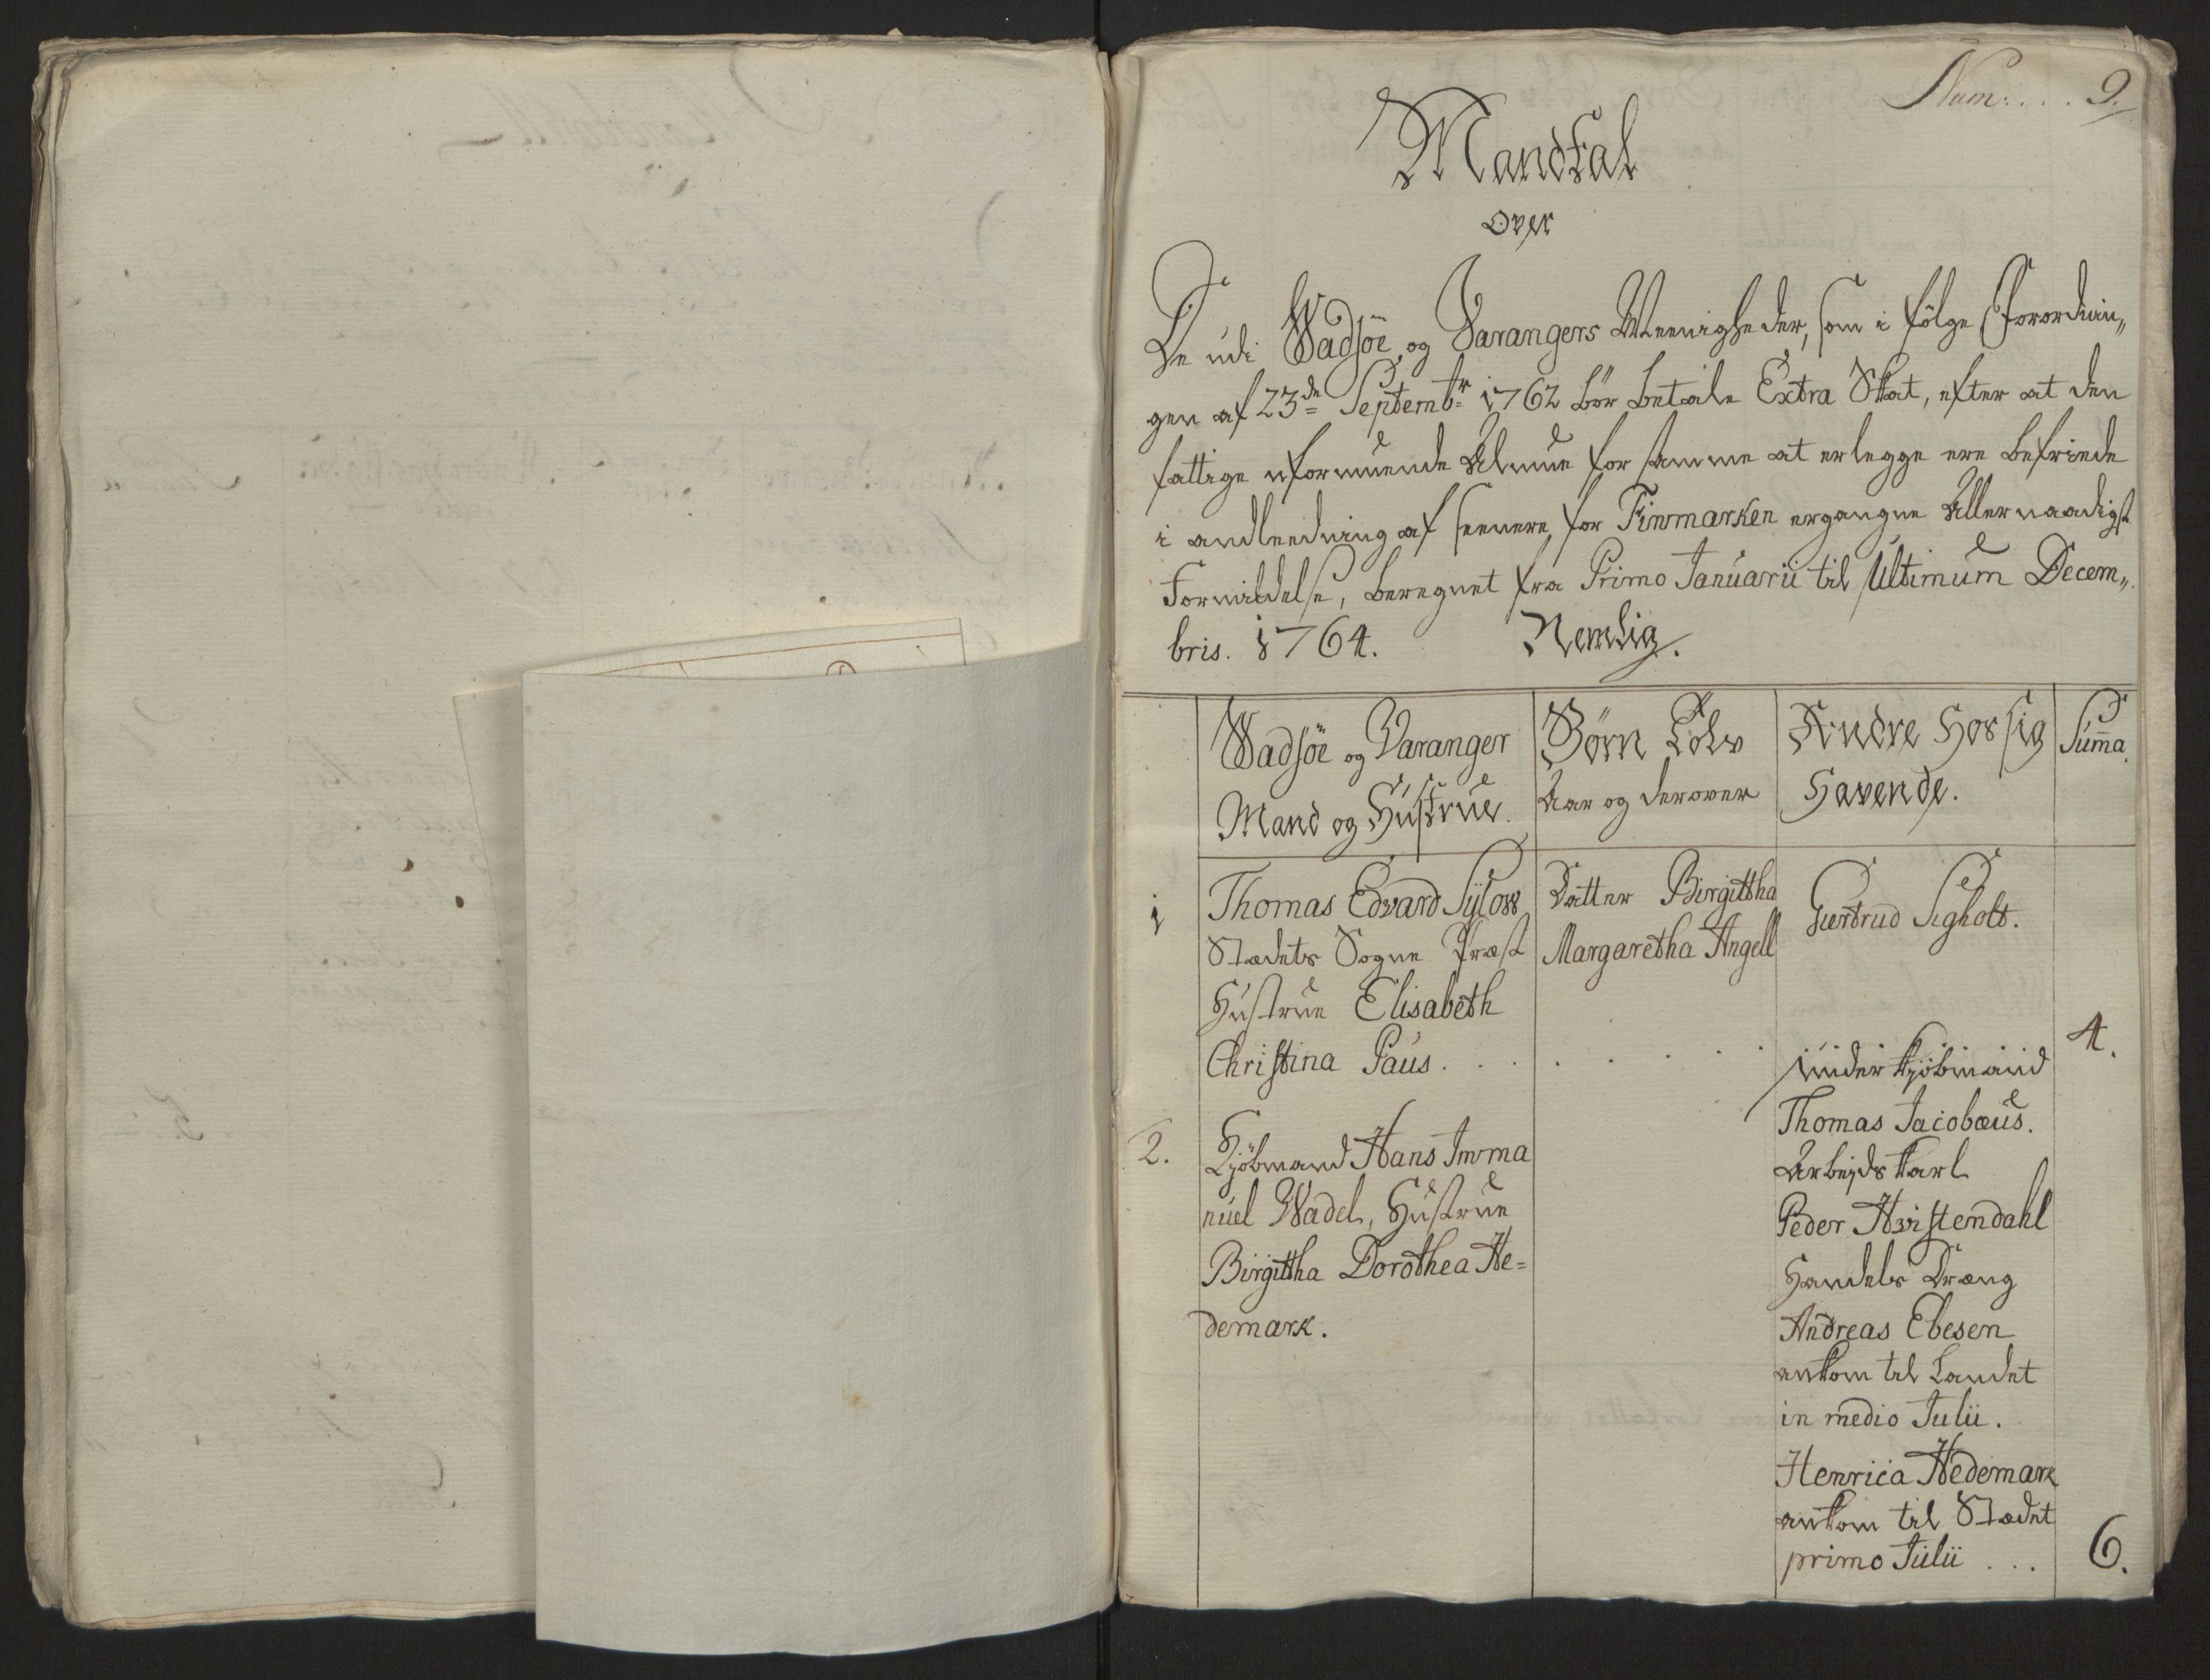 Num: . . . 9.
Mandtal
over
De udi Wadsöe og Varangers Meenigheder, som i fölge Forordnin„
gen af 23de Septembr 1762 bör betale Extra Skat, efter at den
fattige uformuende Almue for samme at erlegge ere befriede
i andleedning af seenere for Finmarken ergangne Allernaadigst
Formildelse, beregnet fra Primo Januarii til Ultimum Decem„
bris. 1764. Nemlig.
Wadsöe og Varanger
Mand og Hustrue.
Börn Tolv
Aar og derover
Andre Hos sig
Havende.
Suma.
1
Thomas Edvard Sylow
Stædets Sogne Præst
Hustrue Elisabeth
Christina Paus. . . . . . . .
Datter Birgittha
Margaretha Angell
Giertrud Sigholt.
4.
2.
Kjöbmand Hans Imma
nuel Wadel, Hustrue
Birgittha Dorothea He=
demark.
Under Kjöbmand
Thomas Jacobæus.
Arbejds Karl
Peder Hvistendahl
Handels Dræng
Andreas Ebesen
ankom til Landet
in medio Julii.
Henrica Hedemark
ankom til Stædet
primo Julii . . . 6.